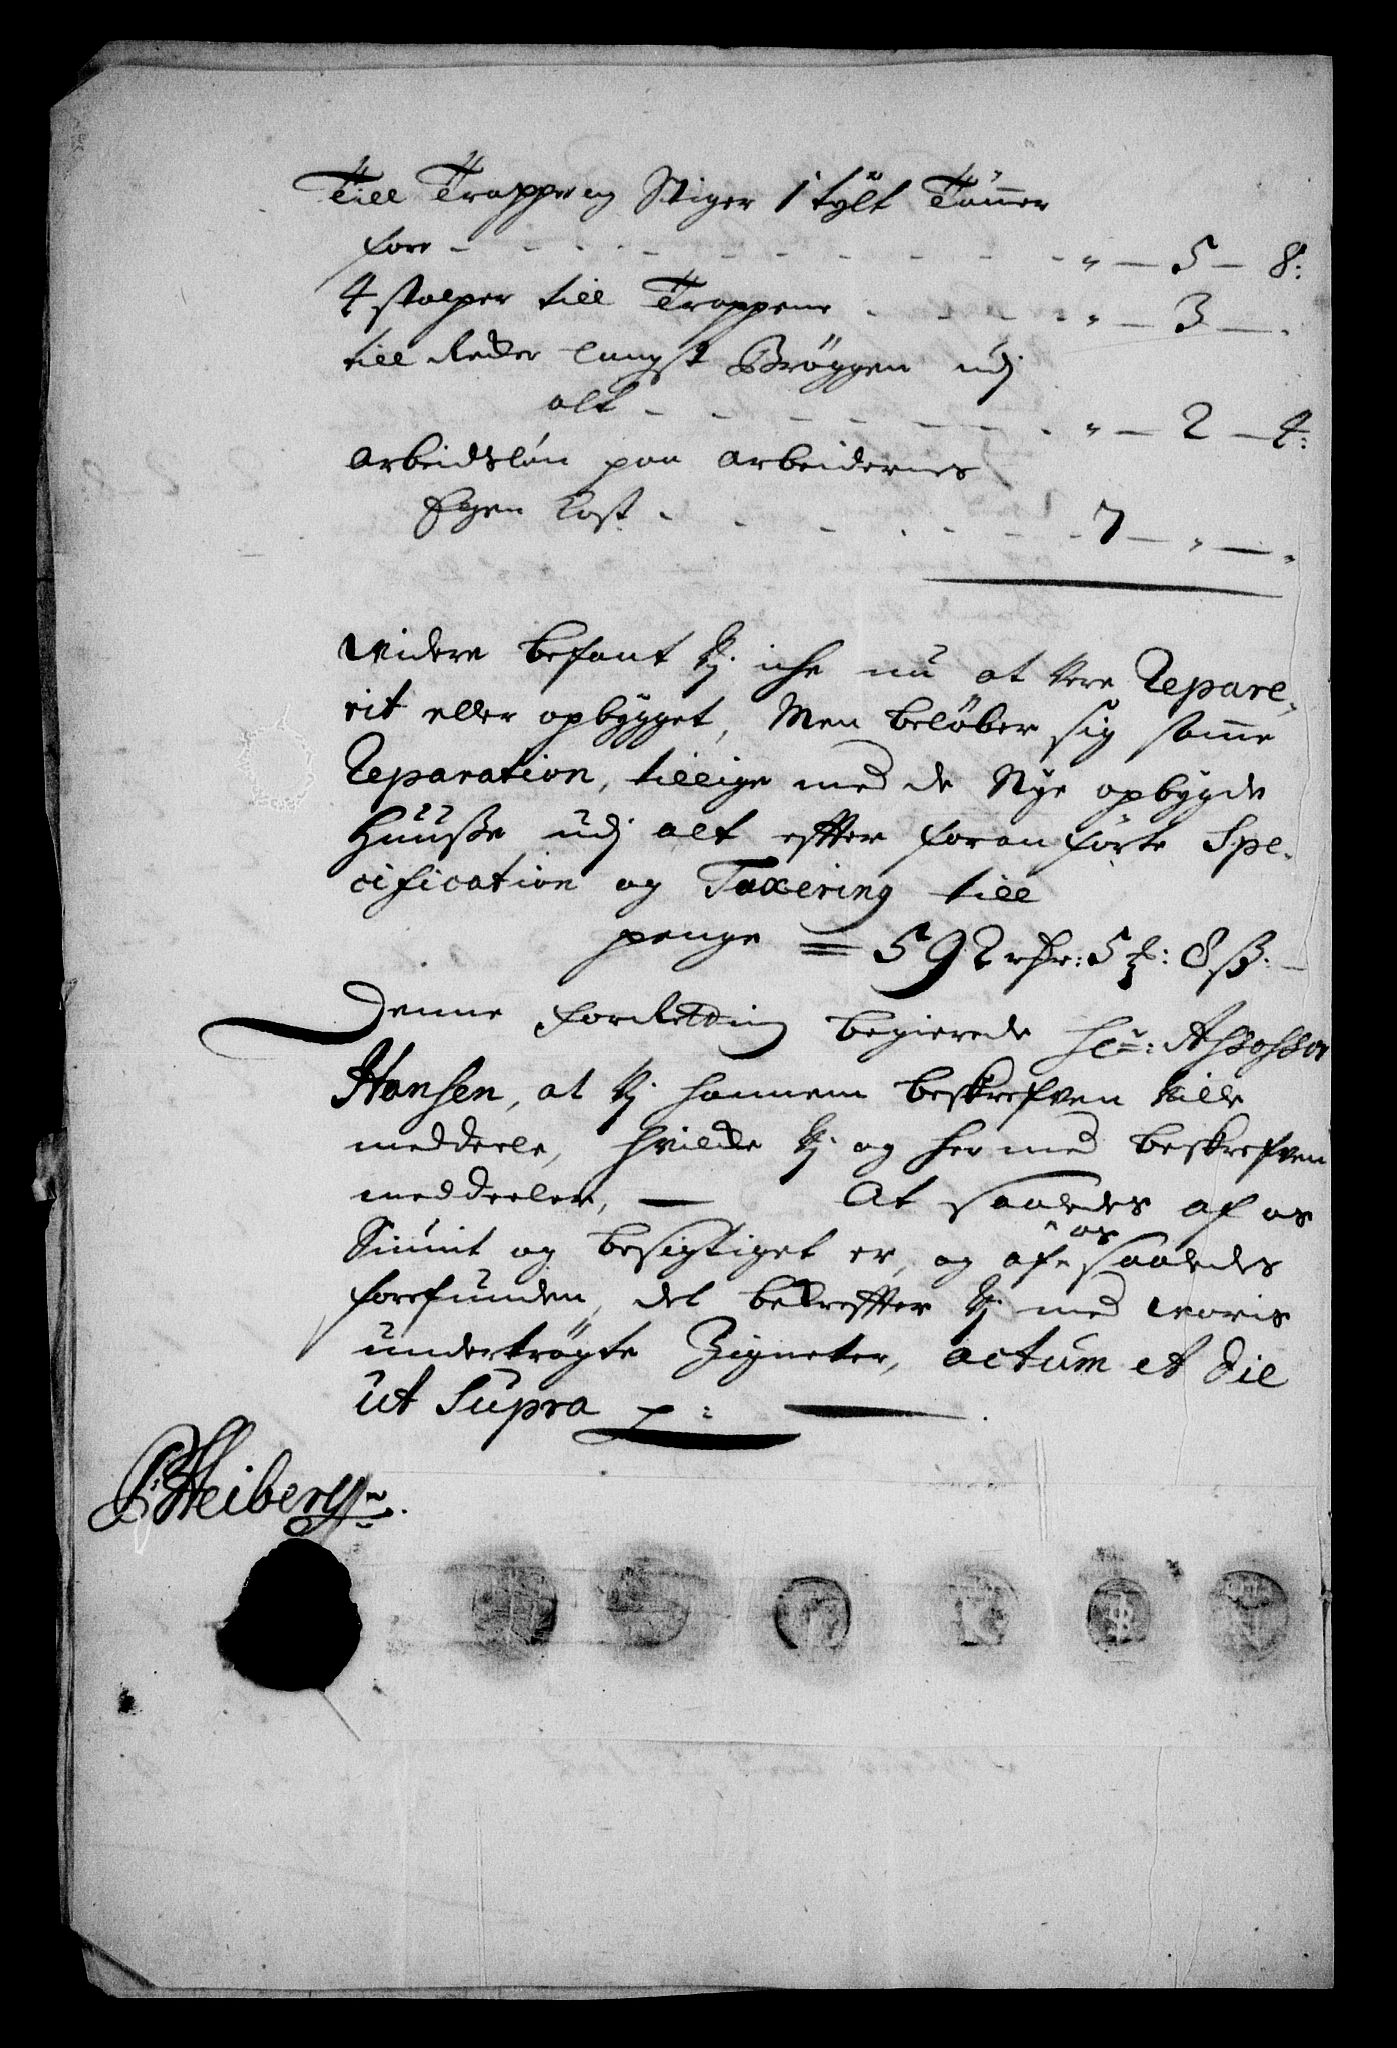 Till Trappe og Stiger 1 tylt Tömer
fore - - - - - - - " — 5 — 8:
4 stolper till Trappene - - - - " — 3 — .
till Reder langst Bröggen udj
alt - - - - - - " — 2 — 4:
Arbeidslön paa Arbeidernes
Egen Kost - - - - - 7 — " — "
Widere befant Vj iche nu at Vere Repare,
rit eller opbygget, Men belöber sig samme
Reparation, tillige med de Nye opbygde
Huuße udj alt effter foranförte Spe-
cification og Taxering till
penge = 592 rdr: 5 : 8 ß: —
Denne forRetding begierede Hr: Assessor
Hansen, at Vj hannem beskrefven Ville
meddeele, hvilde Vj og hermed beskrefven
meddeeler, — At saaledes af os
Siunit og besigtiget er, og af os saaledes
forefunden, det bekreffter Vj med woris
undertrögte Zigneter, actum et die
ut supra —
Heiberg